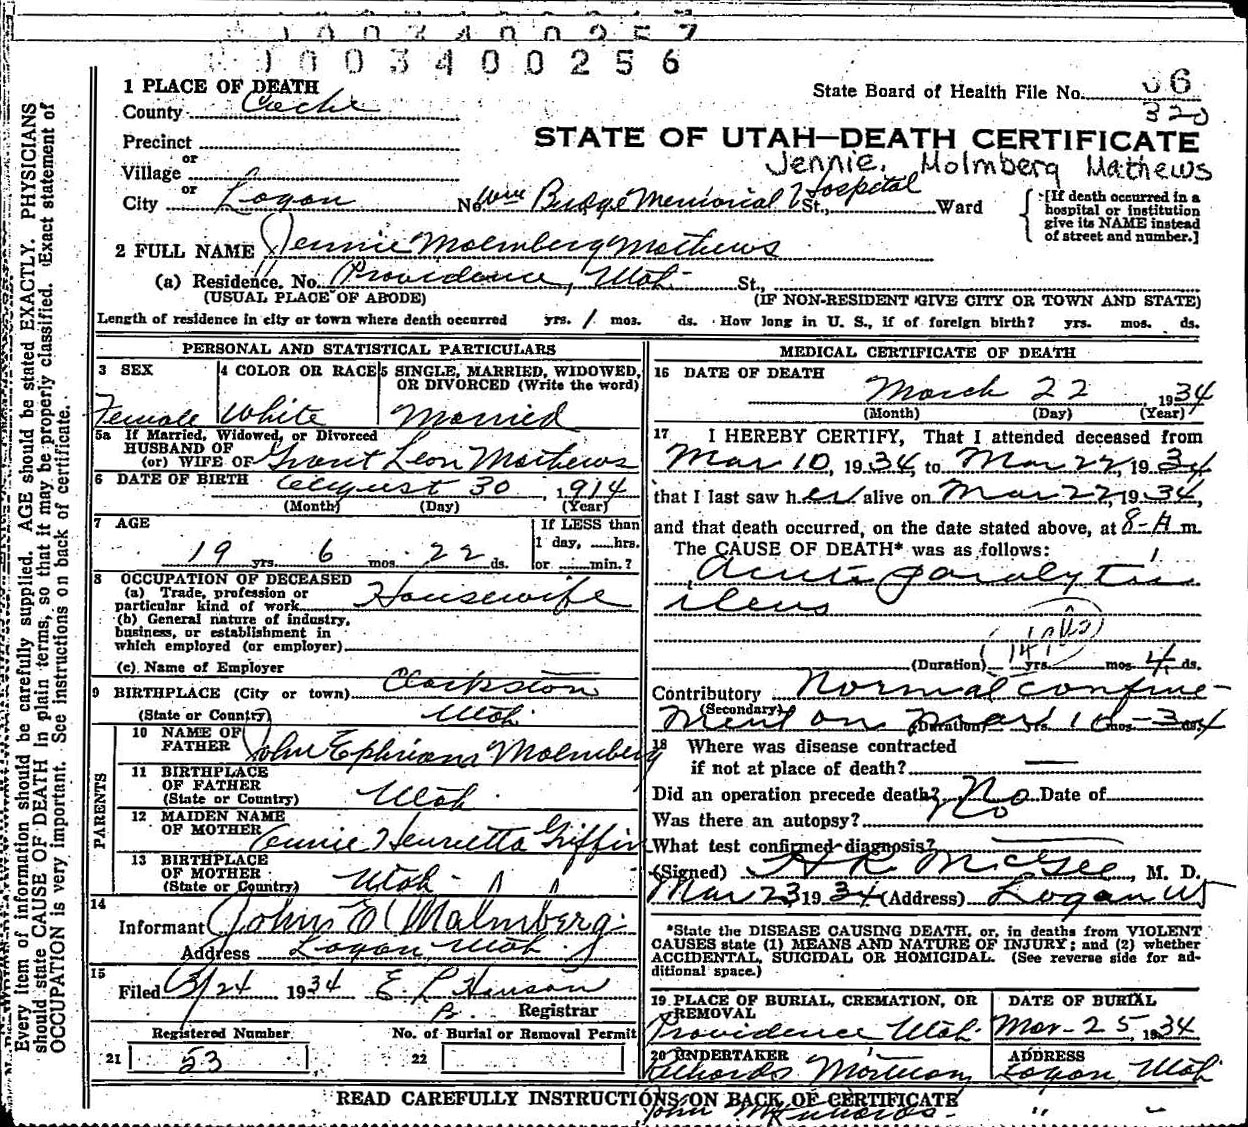 1003400257
1003400256
1 PLACE OF DEATH
County Cache
State Board of Health File No. 36
320
Precinct
STATE OF UTAH—DEATH CERTIFICATE
or
Village
Jennie. Molmberg Mathews
or
City Logan No. Wm Budge Memorial Hospital St., Ward
[If death occurred in a hospital or institution give its NAME instead of street and number.]
2 FULL NAME Jennie Malmberg Mathews
(a) Residence. No. Providence, Utah St.,
(USUAL PLACE OF ABODE) (IF NON-RESIDENT GIVE CITY OR TOWN AND STATE)
Length of residence in city or town where death occurred yrs. 1 mos. ds. How long in U. S., if of foreign birth? yrs. mos. ds.
PERSONAL AND STATISTICAL PARTICULARS
3 SEX 4 COLOR OR RACE 5 SINGLE, MARRIED, WIDOWED, OR DIVORCED (Write the word)
Female White Married
5a If Married, Widowed, or Divorced
HUSBAND OF
(or) WIFE OF Grant Leon Mathews
6 DATE OF BIRTH August 30, 1914
(Month) (Day) (Year)
7 AGE If LESS than
1 day, ___hrs.
19 yrs. 6 mos. 22 ds. or ___min.?
8 OCCUPATION OF DECEASED
(a) Trade, profession or
particular kind of work Housewife
(b) General nature of industry,
business, or establishment in
which employed (or employer)
(c) Name of Employer
9 BIRTHPLACE (City or town) Clarkston
(State or Country) Utah
PARENTS
10 NAME OF
FATHER John Ephriam Malmberg
11 BIRTHPLACE
OF FATHER
(State or Country) Utah
12 MAIDEN NAME
OF MOTHER Annie Henrietta Griffin
13 BIRTHPLACE
OF MOTHER
(State or Country) Utah
14
Informant John E Malmberg
Address Logan, Utah
15
Filed 3/24 1934 E. L. Hanson
Registrar
Registered Number No. of Burial or Removal Permit
21 53 22
MEDICAL CERTIFICATE OF DEATH
16 DATE OF DEATH
March 22 1934
(Month) (Day) (Year)
17 I HEREBY CERTIFY, That I attended deceased from
Mar 10, 1934, to Mar 22, 1934
that I last saw her alive on Mar 22, 1934,
and that death occurred, on the date stated above, at 8-A m.
The CAUSE OF DEATH* was as follows:
Acute paralytic
ileus
(Duration) yrs. mos. 4 ds.
Contributory Normal confine-
(Secondary)
ment on Mar 10-34
(Duration) yrs. mos. ds.
18 Where was disease contracted
if not at place of death?
Did an operation precede death? No Date of
Was there an autopsy? No
What test confirmed diagnosis?
(Signed) H R McGee, M. D.
Mar 23, 1934 (Address) Logan Ut
*State the DISEASE CAUSING DEATH, or, in deaths from VIOLENT
CAUSES state (1) MEANS AND NATURE OF INJURY; and (2) whether
ACCIDENTAL, SUICIDAL OR HOMICIDAL. (See reverse side for ad-
ditional space.)
19 PLACE OF BURIAL, CREMATION, OR REMOVAL DATE OF BURIAL
Providence Utah Mar-25, 1934
20 UNDERTAKER ADDRESS
Richards Mortuary Logan, Utah
READ CAREFULLY INSTRUCTIONS ON BACK OF CERTIFICATE
John
" "
Every item of information should be carefully supplied. AGE should be stated EXACTLY. PHYSICIANS
should state CAUSE OF DEATH in plain terms, so that it may be properly classified. Exact statement of
OCCUPATION is very important. See instructions on back of certificate.